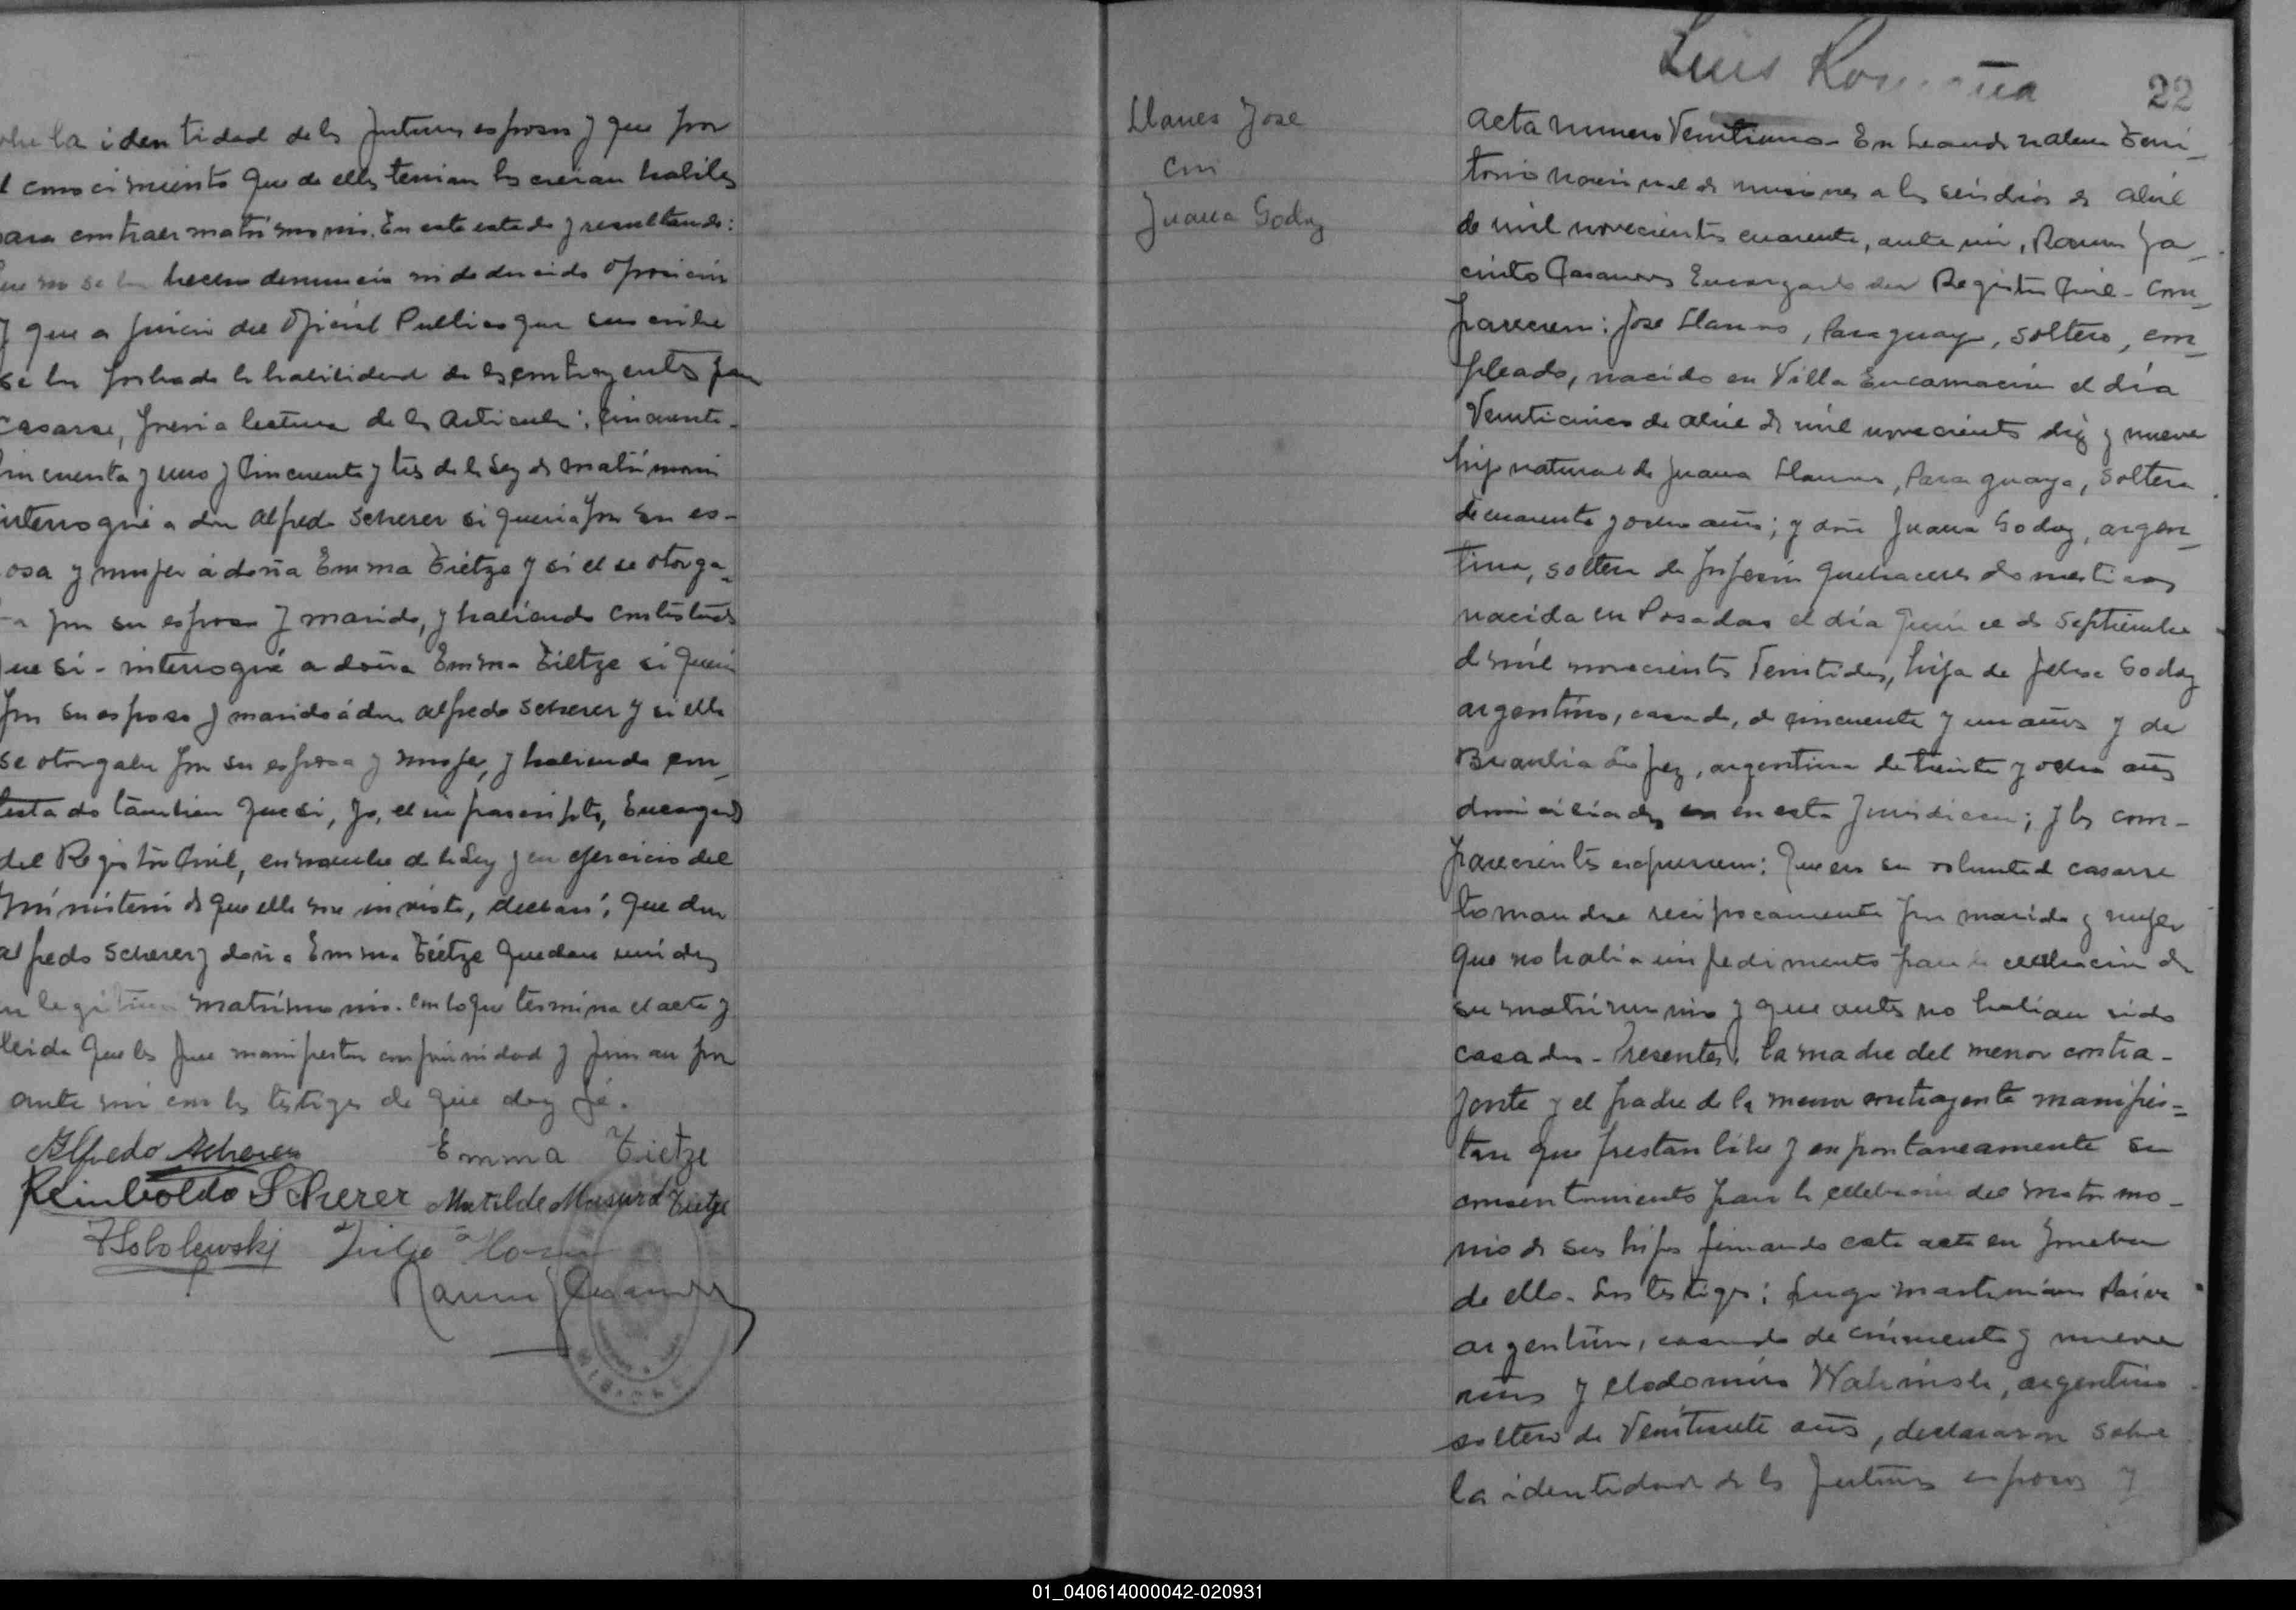 la identidad de los futuros esposos y que por
conocimiento que de ellos tenian los creian habiles
para contraer matrimonio. En este estado y resultando:
que no se ha hecho denuncia ni deducido oposicion
y que a juicio del Oficial Publico que suscribe
se ha probado la habilidad de los contrayentes para
casarse, previa lectura de los articulos: cincuenta-
cincuenta y uno y Cincuenta y tres de la Ley de matrimonio
interrogué a don Alfredo Scherer si queria por su es-
posa y mujer á doña Emma Tietze y si el se otorga-
ba por su esposo y marido, y habiendo contestado
que si - interrogué a doña Emma Tietze si queria
por su esposo y marido á don Alfredo Scherer y si ella
se otorgaba por su esposa y mujer, y habiendo con-
testado tambien que si, yo, el infrascripto, Encargado
del Registro Civil, en nombre de la Ley y en ejercicio del
ministerio de que ella me inviste, declaro: que don
Alfredo Scherer y doña Emma Tietze quedan unidos
en legitimo matrimonio. Con lo que termina el acto y
leida que les fue manifestan conformidad y firman por
ante mi con los testigos de que doy fé.
Alfredo Scherer Emma Tietze
Reinboldo Scherer Matilde Tietze
Sobolewski Julio
Ramon J Casanovas
Luis
22
Llanes Jose
con
Juana Godoy
Acta numero Veintiuno - En Leandro N alem Terri-
torio nacional de misiones a los seis dias de abril
de mil novecientos cuarenta, ante mi, Ramon Ja-
cinto Casanovas Encargado del Registro Civil - Com-
parecen: Jose Llanes, Paraguayo, soltero, em-
pleado, nacido en Villa Encarnacion el dia
Veinticinco de abril de mil novecientos diez y nueve
hijo natural de Juana Llanes, Paraguaya, soltera
de cuarenta y ocho años; y doña Juana Godoy, argen-
tina, soltera de profesion quehaceres domesticos
nacida en Posadas el dia quince de Septiembre
de mil novecientos Veintidos, hija de Godoy
argentino, casado, de cincuenta y un años y de
Braulia Lopez, argentina de treinta y ocho años
domiciliados en en esta Jurisdiccion; y los com-
parecientes expusieron: Que era su voluntad casarse
tomandose reciprocamente por marido y mujer
que no habia impedimento para la celebracion de
su matrimonio y que antes no habian sido
casados - Presentes: la madre del menor contra-
yente y el padre de la menor contrayente manifies-
tan que prestan libre y espontaneamente su
consentimiento para la celebracion del matrimo-
nio de sus hijos firmando esta acta en prueba
de ello. Los testigos: Paiva
argentino, casado de cincuenta y nueve
años y Clodomiro argentino
soltero de Veintisiete años, declararon sobre
la identidad de los futuros esposos y
01_040614000042-020931